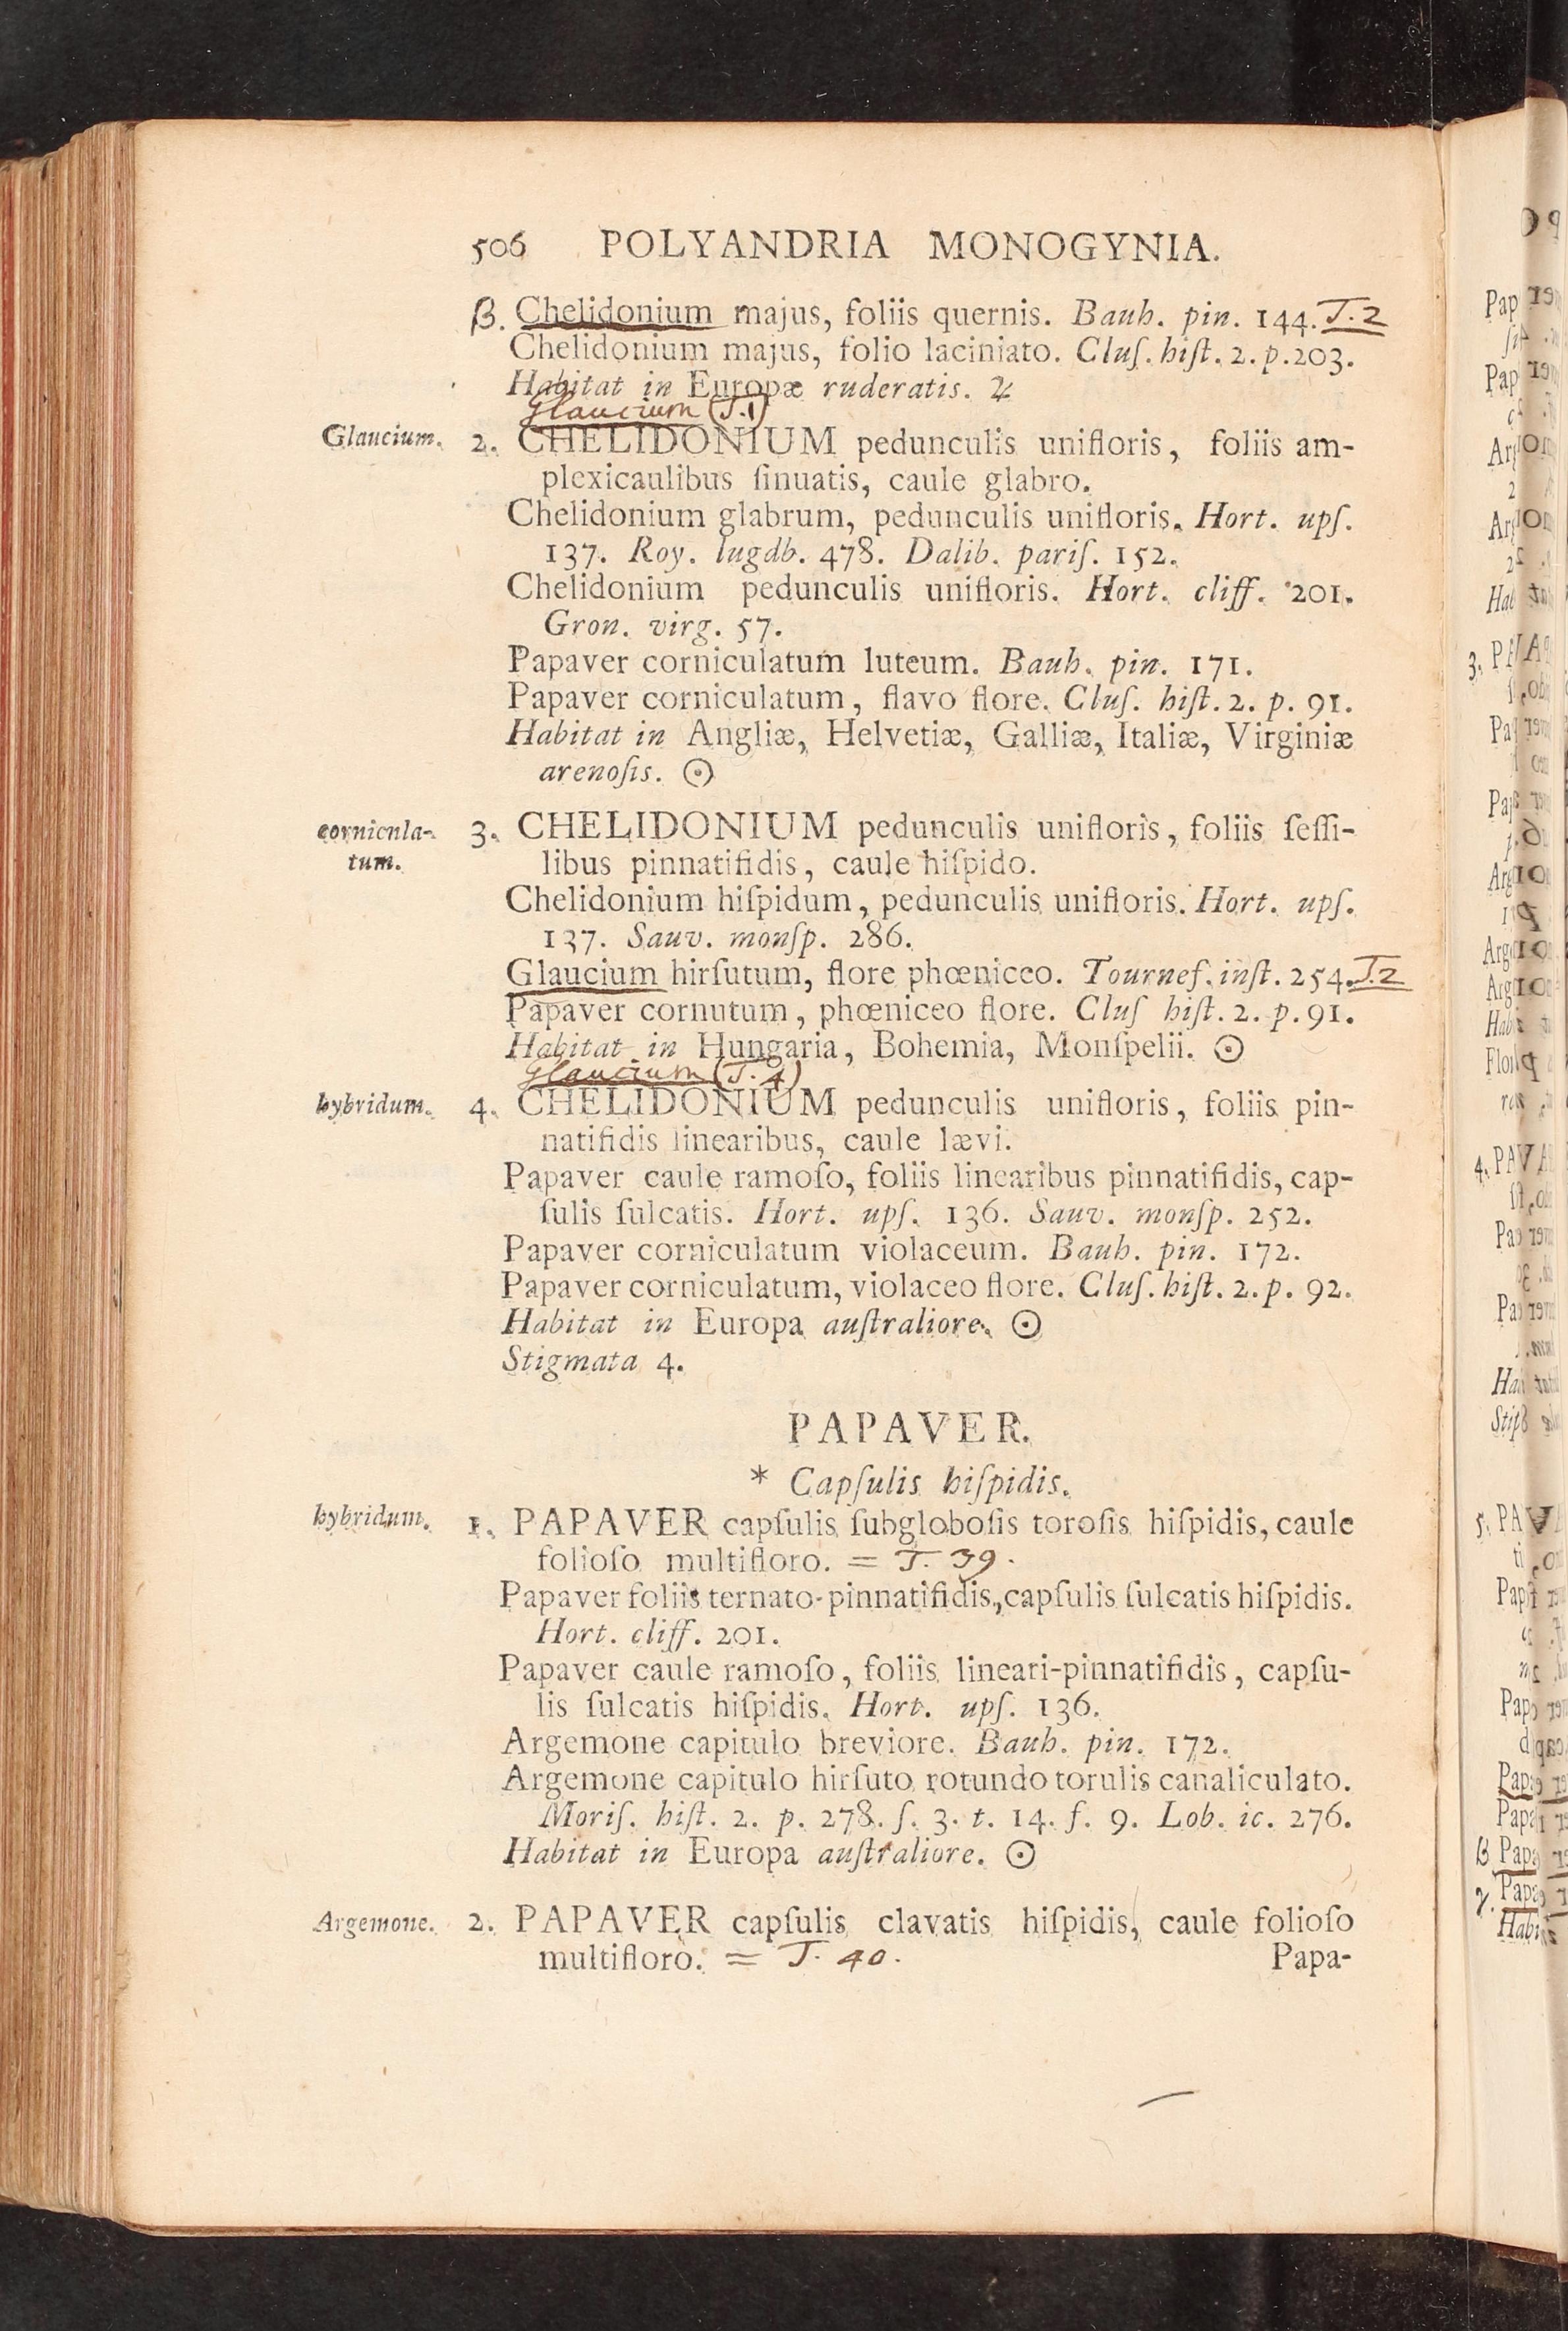 506 POLYANDRIA MONOGYNIA.
β. Chelidonium majus, foliis quernis. Bauh. pin. 144. T. 2
Chelidonium majus, folio laciniato. Cluſ. hiſt. 2. p. 203.
Habitat in Europæ ruderatis. ♃
Glaucium (T. 1)
Glaucium. 2. CHELIDONIUM pedunculis unifloris, foliis am-
plexicaulibus ſinuatis, caule glabro.
Chelidonium glabrum, pedunculis unifloris. Hort. upſ.
137. Roy. lugdb. 478. Dalib. pariſ. 152.
Chelidonium pedunculis unifloris. Hort. cliff. 201.
Gron. virg. 57.
Papaver corniculatum luteum. Bauh. pin. 171.
Papaver corniculatum, flavo flore. Cluſ. hiſt. 2. p. 91.
Habitat in Angliæ, Helvetiæ, Galliæ, Italiæ, Virginiæ
arenoſis. ☉
cornicula- 3. CHELIDONIUM pedunculis unifloris, foliis ſeſſi-
tum. libus pinnatifidis, caule hiſpido.
Chelidonium hiſpidum, pedunculis unifloris. Hort. upſ.
137. Sauv. monſp. 286.
Glaucium hirſutum, flore phœniceo. Tournef. inſt. 254. T. 2
Papaver cornutum, phœniceo flore. Cluſ hiſt. 2. p. 91.
Habitat in Hungaria, Bohemia, Monſpelii. ☉
Glaucium (T. 4)
hybridum. 4. CHELIDONIUM pedunculis unifloris, foliis pin-
natifidis linearibus, caule lævi.
Papaver caule ramoſo, foliis linearibus pinnatifidis, cap-
ſulis ſulcatis. Hort. upſ. 136. Sauv. monſp. 252.
Papaver corniculatum violaceum. Bauh. pin. 172.
Papaver corniculatum, violaceo flore. Cluſ. hiſt. 2. p. 92.
Habitat in Europa auſtraliore. ☉
Stigmata 4.
PAPAVER.
* Capſulis hiſpidis.
hybridum. 1. PAPAVER capſulis ſubgloboſis toroſis hiſpidis, caule
folioſo multifloro. = T. 39.
Papaver foliis ternato-pinnatifidis, capſulis ſulcatis hiſpidis.
Hort. cliff. 201.
Papaver caule ramoſo, foliis lineari-pinnatifidis, capſu-
lis ſulcatis hiſpidis. Hort. upſ. 136.
Argemone capitulo breviore. Bauh. pin. 172.
Argemone capitulo hirſuto rotundo torulis canaliculato.
Moriſ. hiſt. 2. p. 278. ſ. 3. t. 14. f. 9. Lob. ic. 276.
Habitat in Europa auſtraliore. ☉
Argemone. 2. PAPAVER capſulis clavatis hiſpidis, caule folioſo
multifloro. = T. 40. Papa-